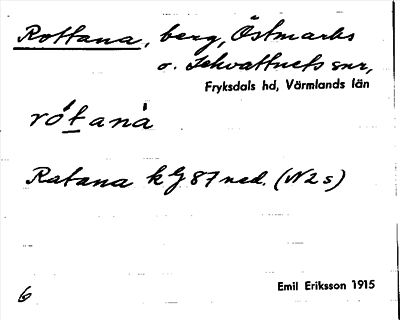 Rottana, berg, Östmarks
o. Lekvattnets snr,
Fryksdals hd, Värmlands län
rótanà
Ratana k G 87 ned. (N2s)
Emil Eriksson 1915
6